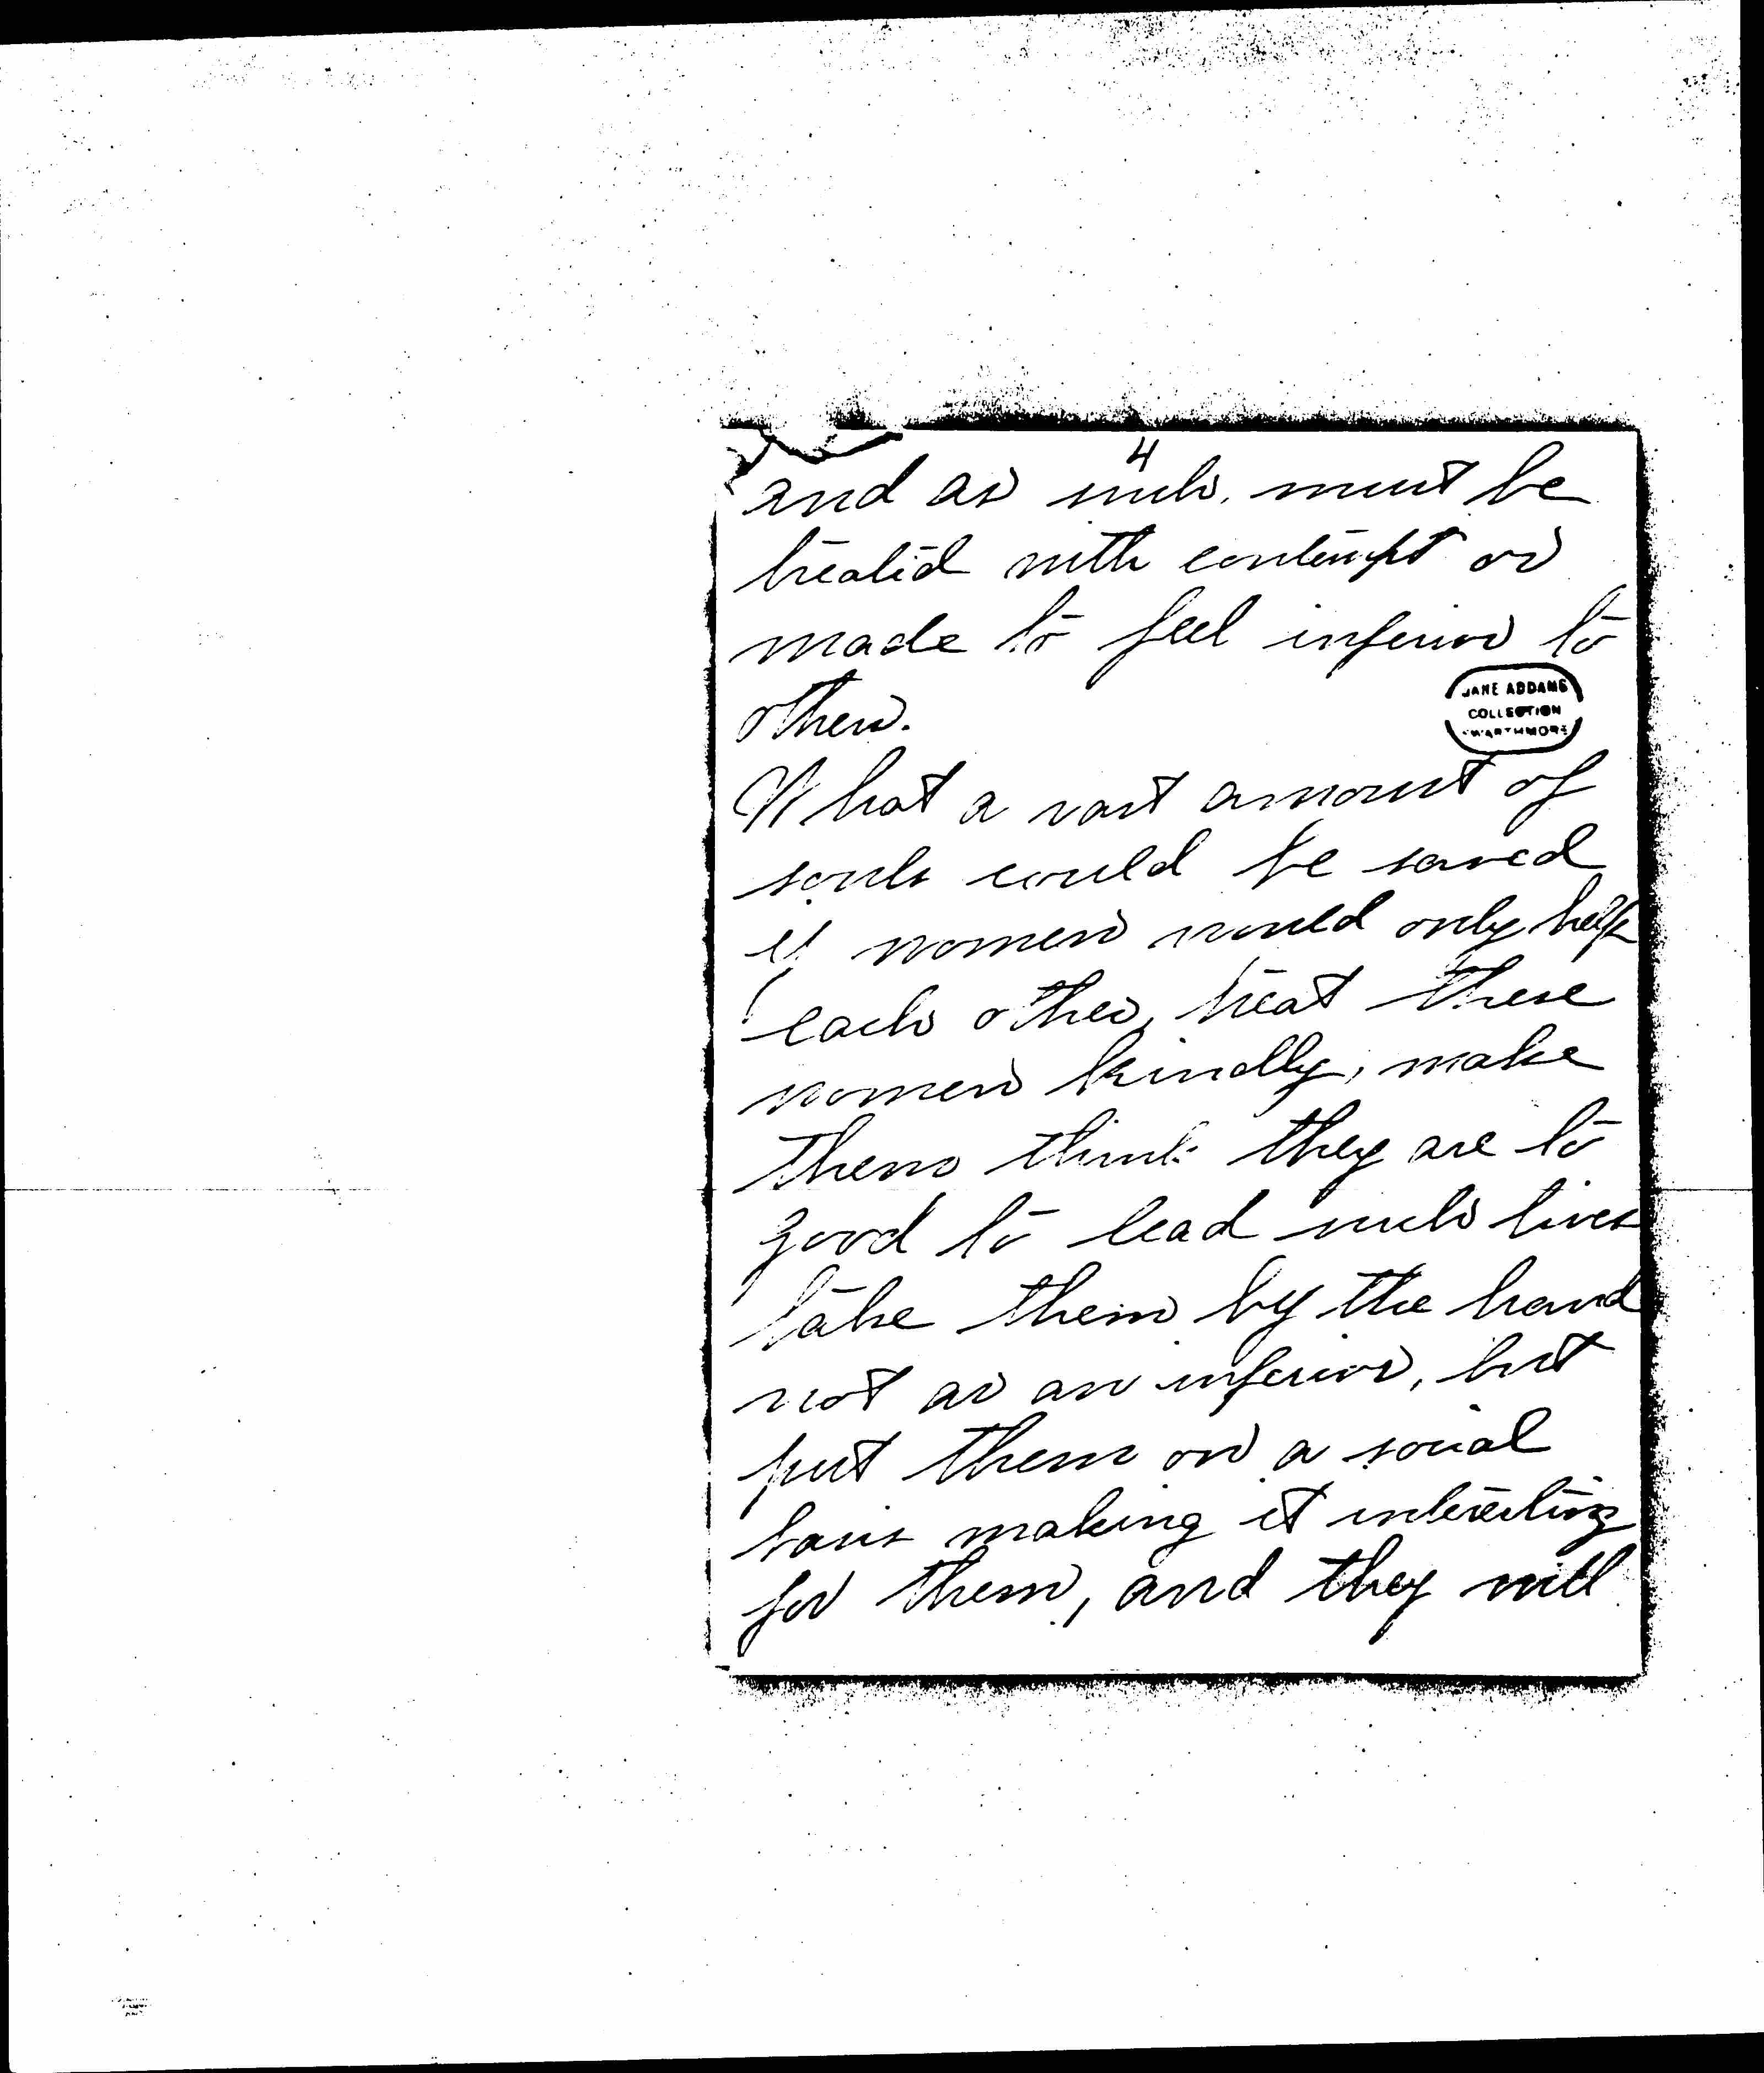 4
and as such, must be
treated with contempt or
made to feel inferior to
others.
JANE ADDAMS
COLLECTION
SWARTHMORE
What a vast amount of
souls could be saved
if women would only help
each other, treat these
women kindly, make
them think they are to
good to lead such lives
take them by the hand
not as an inferior, but
put them on a social
basis making it interesting
for them, and they will